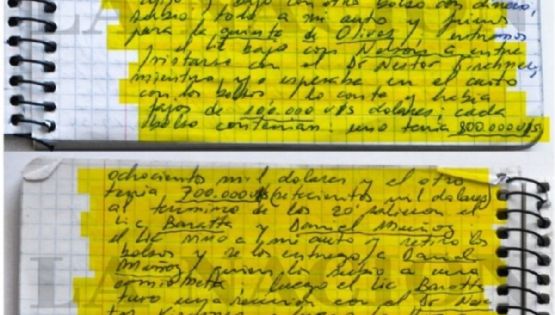 y bajo con otro bolso con dinero,
subio todo a mi auto y fuimos
para la quinta de Olivos, entramos
y el lic bajo con Nelson a entre
vistarse con el Dr Nestor Kirchner,
mientras yo esperaba en el auto
con los bolsos lo conte y habia
fajos de 100.000 U$S dolares, cada
bolso contenian: uno tenia 800.000 U$S
ochociento mil dolares y el otro
tenia 700.000 U$S (setecientos mil dolares)
al termino de los 20' salieron el
lic Baratta y Daniel Muñoz
el lic vino a mi auto y retiro los
bolsos y se los entrego a Daniel
Muñoz, quien los subio a una
camioneta; luego el lic Baratta
tuvo una reunion con el Dr Nes
LA NACION
LA NACION